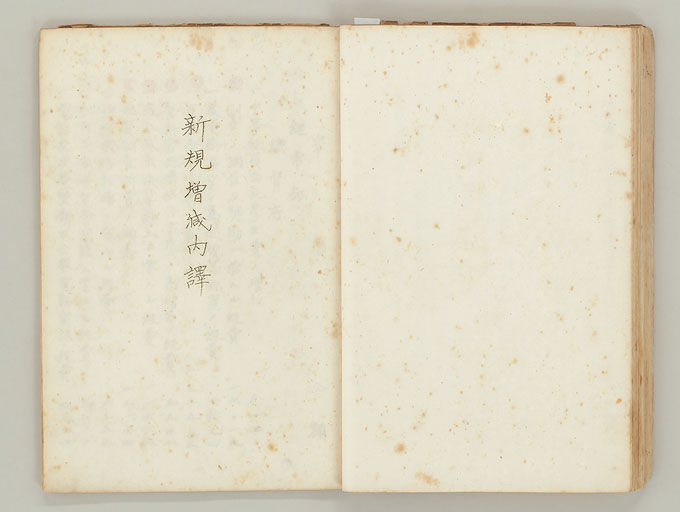 新規増減内譯